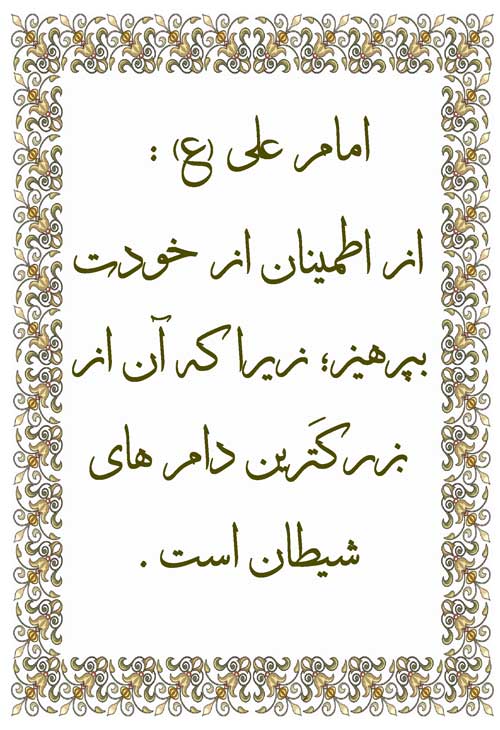 امام علی (ع) :
از اطمینان از خودت
بپرهیز؛ زیرا که آن از
بزرگَترین دام های
شیطان است .